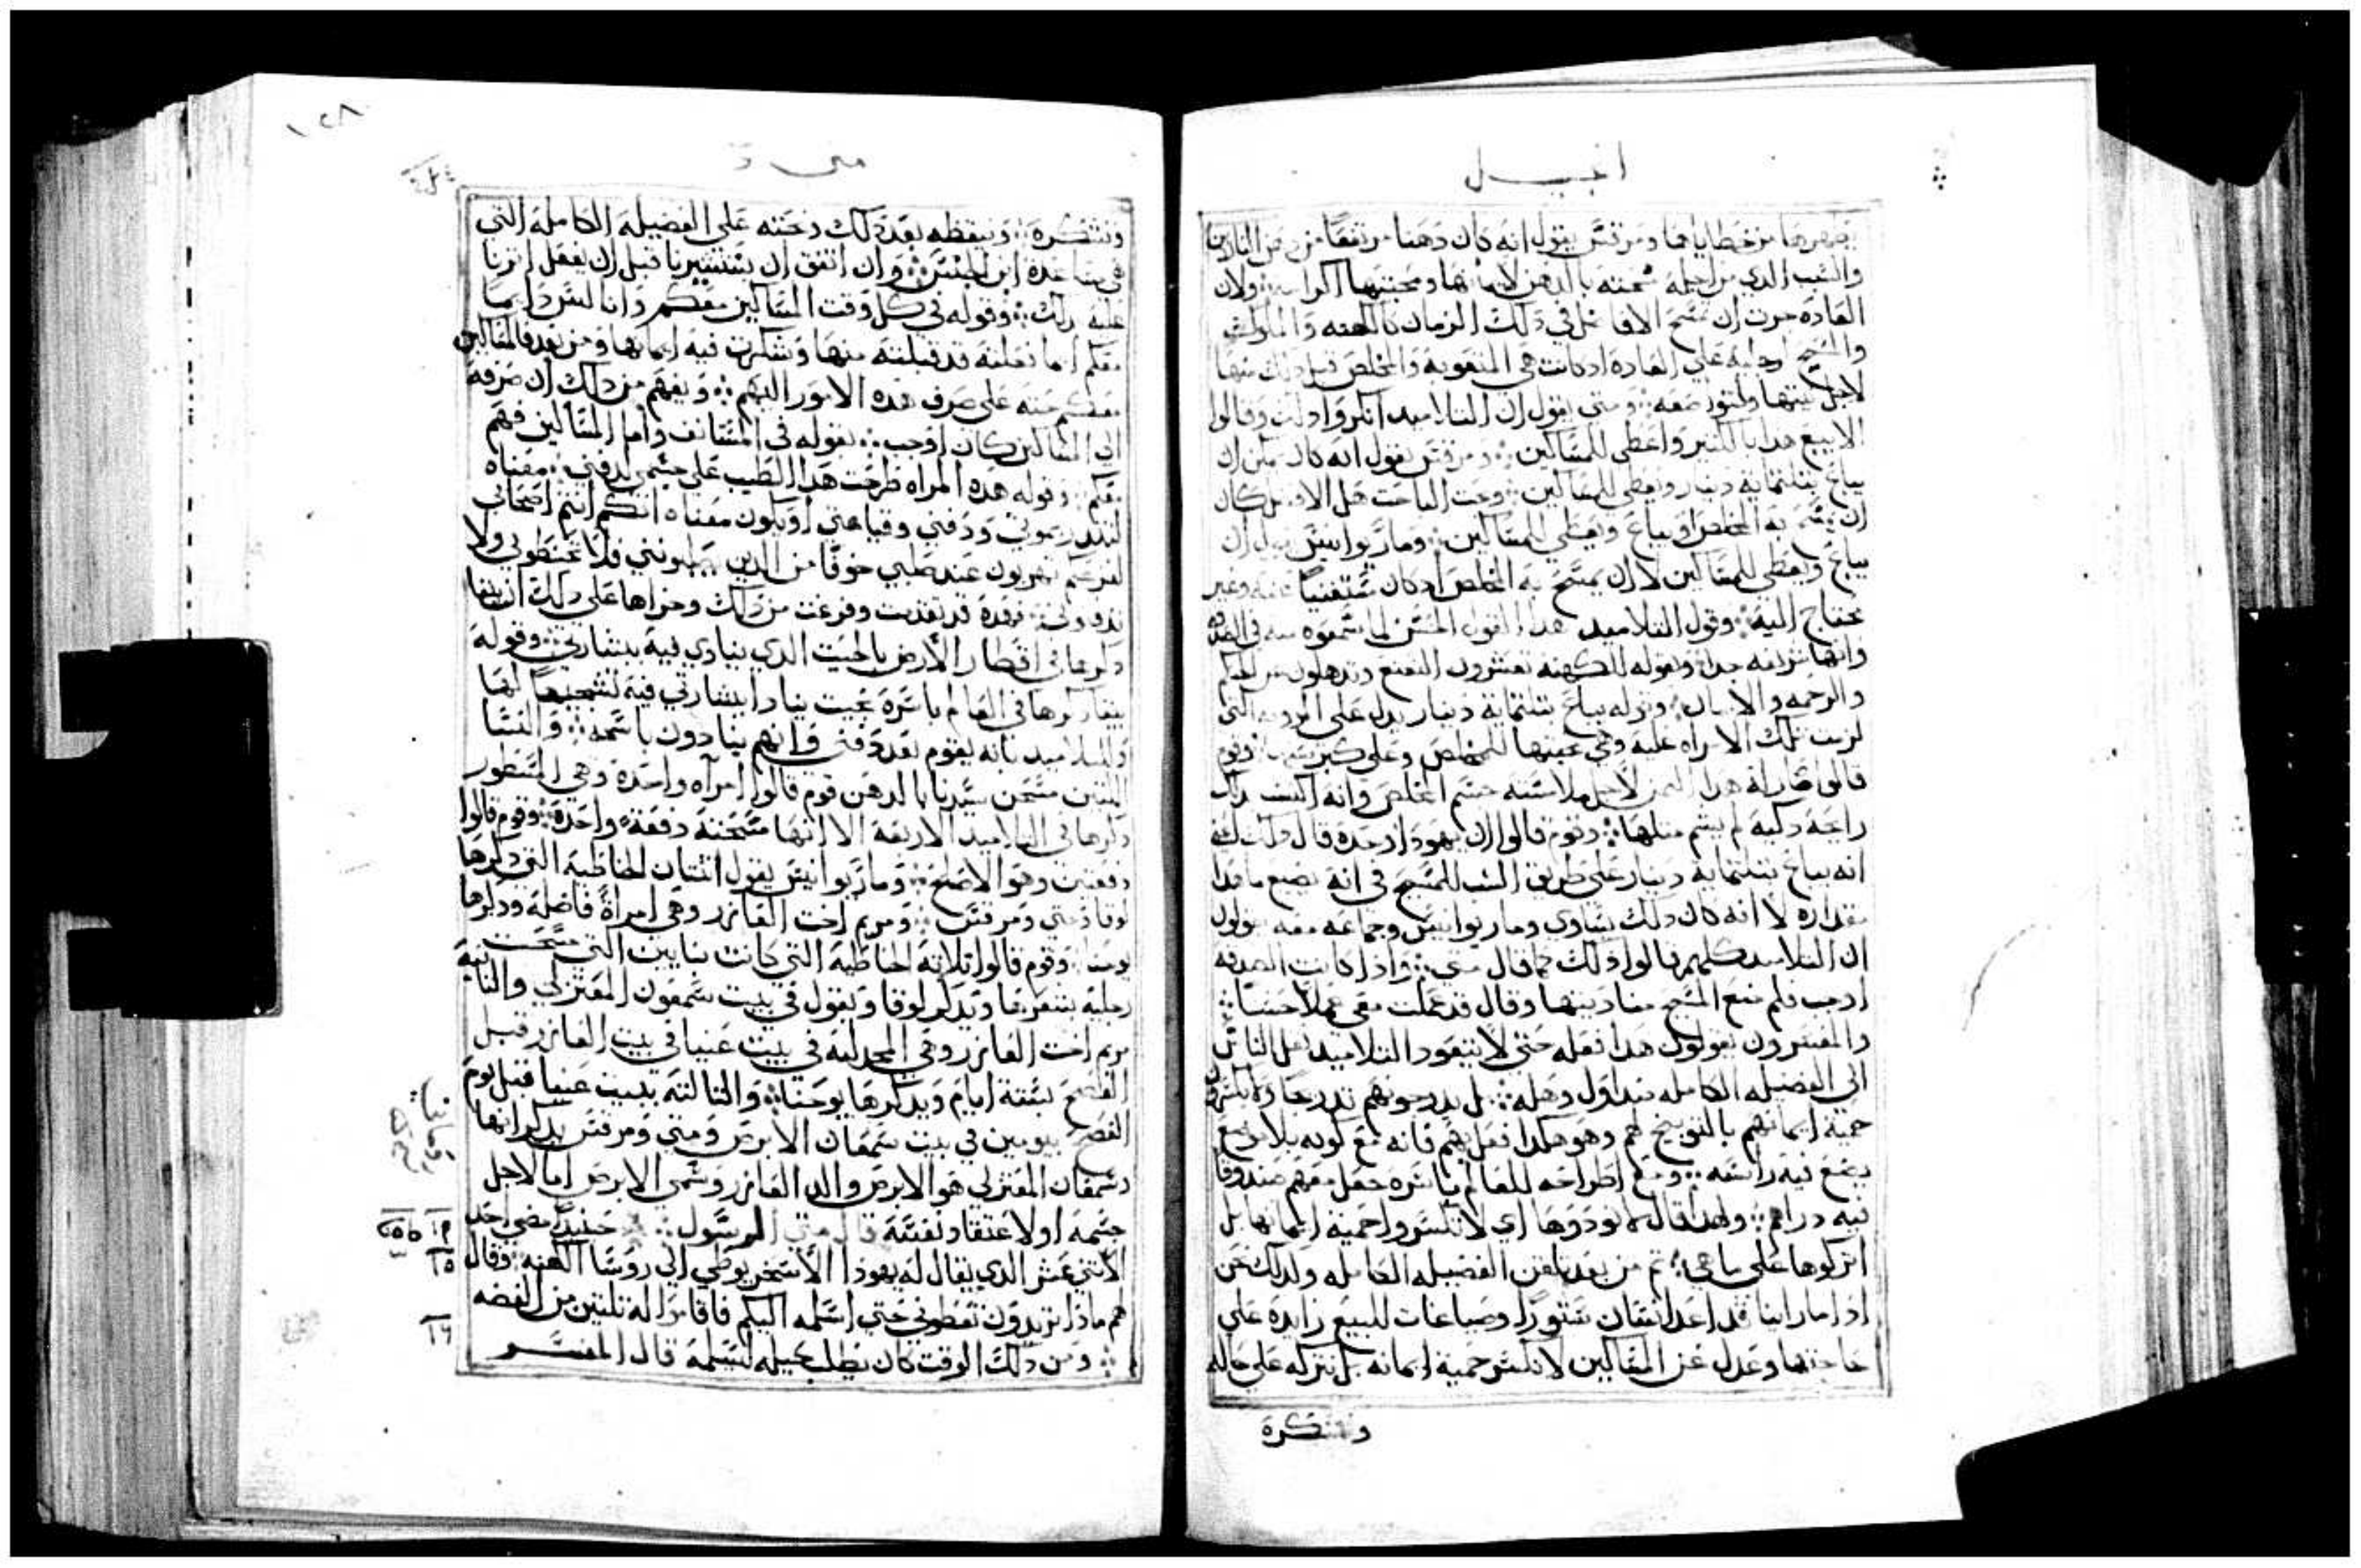 انجيل
يطهرها من خطاياها ومرقس يقول انه كان دهنا مرتفعا من دهن الناردين
والسبب الدي من اجله مسحته بالدهن لايمانها ومحبتها اكرامه ولان
العاده جرت ان تمسح الافاضل في دلك الزمان كالكهنه والملوك
والمسيح رجليه علي العاده اد كانت هي المنعوبه والمخلص قبل دلك منها
لاجل نيتها ولتواضعه ومتي يقول ان التلاميد انكروا دلك وقالوا
الا بيع هدا بالكتير واعطي للمساكين ومرقس يقول انه كان يمكن ان
يباع بتلتمايه دينار ويعطي للمساكين وبحت الباحت هل الافضل كان
ان يمسح به المخلص او يباع ويعطي للمساكين ومار يوانيس يقول ان
يباع ويعطي للمساكين لا ان يمسح به المخلص اد كان مستغنيا عنه وغير
محتاج اليه وقول التلاميد هدا القول الحسن لما سمعوه منه في الصدقه
وانها شريفه جدا وبقوله للكهنه تعشرون النعنع وتدهلون عن الحكم
والرحمه والايمان وقوله يباع بتلتمايه دينار يدل علي المرويه التي
لزمت تلك الامراه عليه وهي محبتها للمخلص وعلي كبر وقوم
قالوا صار له هدا التمن لاجل ملامسته جسم المخلص وانه اكتسب بدلك
رايحه دكيه لم يشم متلها وقوم قالوا ان يهودا وحده قال دلك
انه يباع بتلتمايه دينار علي طريق السب للمسيح في انه يضيع ما هدا
مقداره لا انه كان دلك يساوي ومار يوانيس وجماعه معه يقولون
ان التلاميد كلهم قالوا دلك كما قال متي وادا كانت الصدقه
اوجب فلم منع المسيح منها وقال قد عملت معي عملا حسنا
والمفسرون يقولون هدا فعله حتي لا يتعود التلاميد نقل الناس
الي الفضيله الكامله من اول وهله بل يدرجونهم تدرجا ولا يكسرون
حمية ايمانهم بالتوبيخ لهم وهو هكدا فعل بهم فانه مع كونه بلا موضع
يضع فيه راسه ومع اطراحه للعالم باسره جعل معهم صندوقا
فيه دراهم ولهدا قال لا تودوها اي لا تكسروا حمية ايمانها بل
اتركوها علي ما هي تم من بعد تلقن الفضيله الكامله ولدلك نحن
ادا ما راينا قد اعد انسان ستورا وصياغات للبيع زايده علي
حاجتها وعدل عن المساكين لا نكسر حمية ايمانه بل نتركه علي حاله
ونشكره
١٢٨
متي
ونشكره ونيقظه بعد دلك ونحته علي الفضيله الكامله التي
هي مساعدة ابن الجنس وان اتفق ان يستشيرنا قبل ان يفعل اشرنا
عليه بدلك وقوله في كل وقت المساكين معكم وانا لست دايما
معكم اما فعلته قد قبلته منها وشكرت فيه ايمانها ومن بعد فالمساكين
معكم حته علي صرف هده الامور اليهم ويفهم من دلك ان صرفه
الي المساكين كان اوجب بقوله في المستانف واما المساكين فهم
معكم وقوله هده المراه طرحت هدا الطيب علي جسمي لدفني معناه
لتندر بموتي ودفني وقيامتي او يكون معناه انكم انتم اصحابي
لفزعكم تهربون عند صلبي خوفا من الدين يصلبونني فلا تحنطوني ولا
تدفنوني فهده قد تقدمت وفرغت من دلك وجزاها علي دلك ان يبقا
دكرها في اقطار الارض بالحيت الدي ينادي فيه ببشارتي وقوله
يبقا دكرها في العالم باسره بحيت ينادا ببشارتي فيه تشجيعا لها
وللتلاميد بانه يقوم بعد دفني وانهم ينادون باسمه والنسا
اللتين مسحن سيدنا بالدهن قوم قالوا امراه واحده وهي المسطور
دكرها في التلاميد الاربعه الا انها مسحته دفعة واحدة وقوم قالوا
دفعتين وهو الاصلح ومار يوانيس يقول اتنتان الخاطيه التي دكرها
لوقا ومتي ومرقس ومريم اخت العازر وهي امراة فاضله ودكرها
يوحنا وقوم قالوا تلاته الخاطيه التي كانت بنايين التي مسحت
رجليه بشعرها ويدكر لوقا ويقول في بيت شمعون المعتزلي والتانيه
مريم اخت العازر وهي المجدليه في بيت عنيا في بيت العازر قبل
الفصح بستة ايام ويدكرها يوحنا والتالته ببيت عنيا قبل يوم
الفصح بيومين في بيت سمعان الابرص ومتي ومرقس يدكرانها
وسمعان المعتزلي هو الابرص والد العازر وسمي الابرص اما لاجل
جسمه او لاعتقاد نفسه قال متي الرسول حينيد مضي احد
الاتني عشر الدي يقال له يهودا الاسخريوطي الي روسا الكهنه وقال
لهم مادا تريدون تعطوني حتي اسلمه اليكم فاقاموا له تلتين من الفضه
ومن دلك الوقت كان يطلب حيله لتسلمه قال المفسر
١٥
١٦